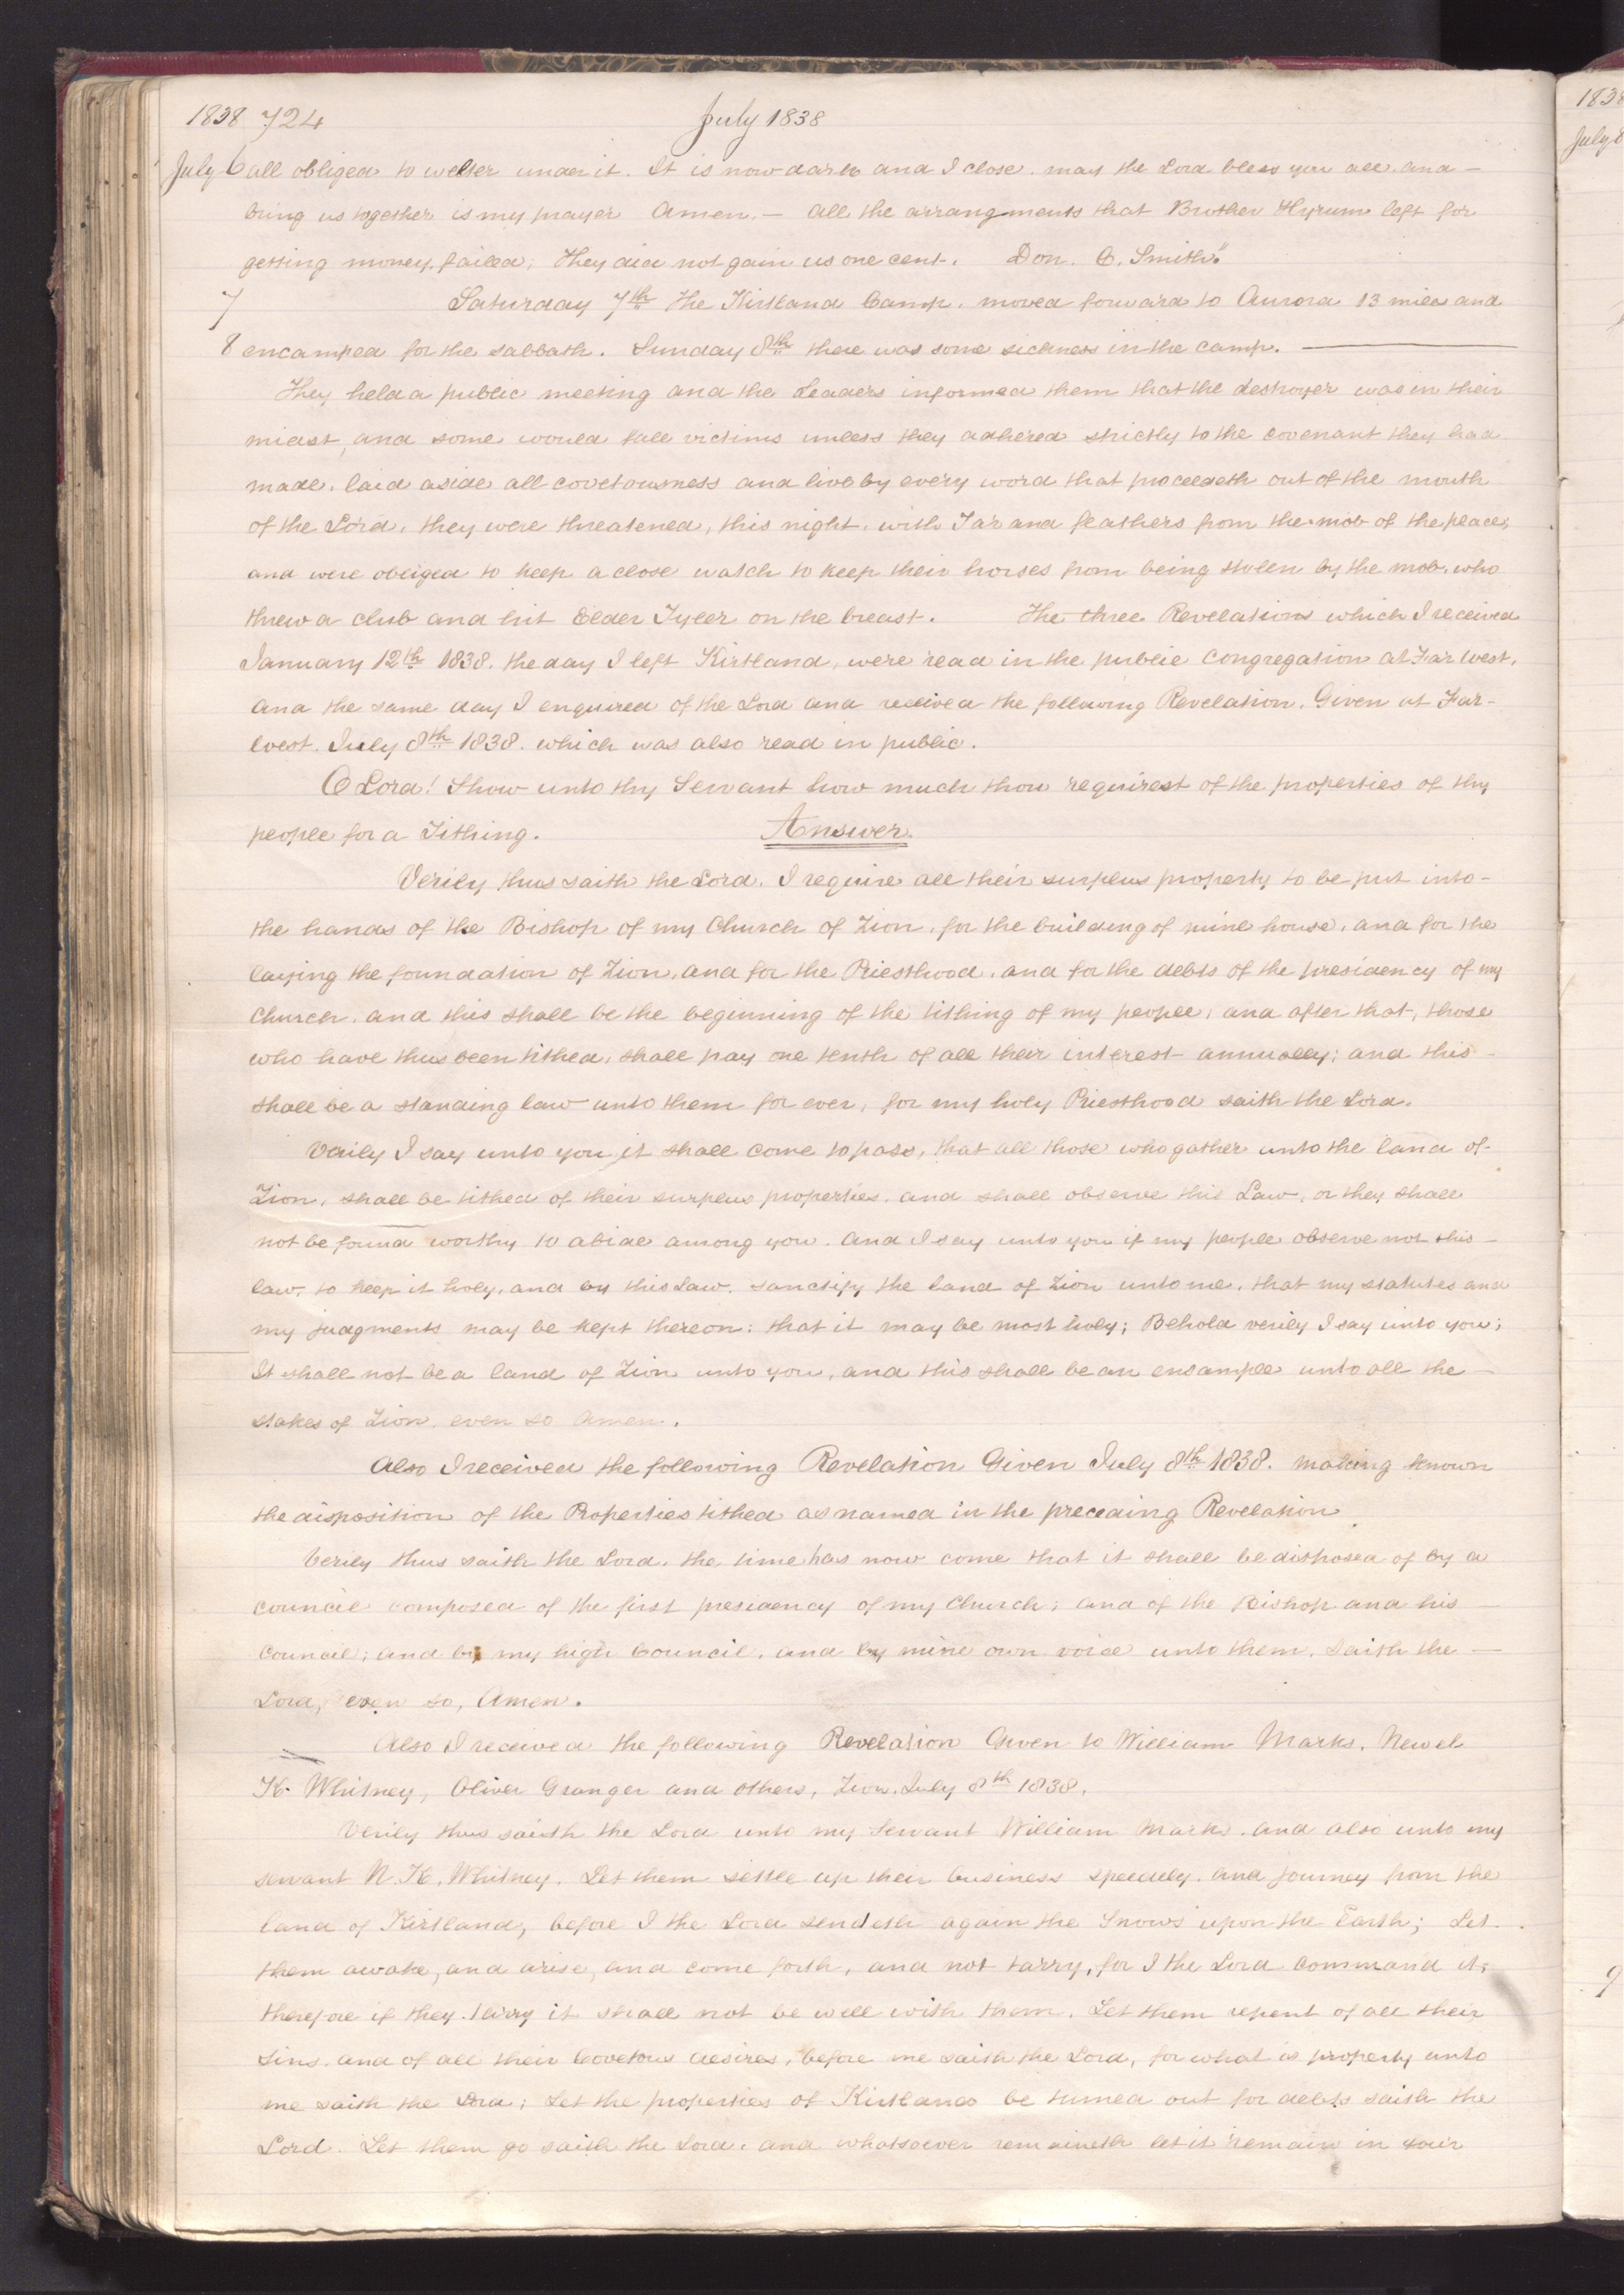 1838 724 July 1838
July 6 all obliged to welter under it. It is now dark and I close. may the Lord bless you all. and –
bring us together is my prayer Amen. – all the arrangments that Brother Hyrum left for
getting money, failed; they did not gain us one cent. Don. C. Smith."
7 Saturday 7th The Kirtland Camp. moved forward to Aurora 13 miles and
8 encamped for the sabbath. Sunday 8th there was some sickness in the camp. —
They held a public meeting and the Leaders informed them that the destroyer was in their
midst, and some would fall victims unless they adhered strictly to the covenant they had
made. laid aside all covetousness and live by every word that proceedeth out of the mouth
of the Lord. they were threatened, this night, with Tar and feathers from the mob of the place;
and were obliged to keep a close watch to keep their horses from being stolen by the mob. who
threw a club and hit Elder Tyler on the breast. The three Revelations which I received
January 12th 1838. the day I left Kirtland, were read in the public Congregation at Far West.
and the same day I enquired of the Lord and received the following Revelation. Given at Far-
West. July 8th 1838. which was also read in public.
O Lord! Show unto thy Servant how much thou requirest of the properties of thy
people for a Tithing. Answer.
Verily thus saith the Lord. I require all their surplus property to be put into –
the hands of the Bishop of my Church of Zion, for the building of mine house, and for the
laying the foundation of Zion, and for the Priesthood, and for the debts of the presidency of my
Church. and this shall be the beginning of the tithing of my people; and after that, those
who have thus been tithed, shall pay one tenth of all their interest annually; and this –
shall be a standing law unto them for ever, for my holy Priesthood saith the Lord.
Verily I say unto you it shall come to pass, that all those who gather unto the land of –
Zion, shall be tithed of their surplus properties. and shall observe this Law, or they shall
not be found worthy to abide among you. and I say unto you if my people observe not this –
law, to keep it holy, and by this Law. sanctify the land of Zion unto me, that my statutes and
my judgments may be kept thereon: that it may be most holy; Behold verily I say unto you;
It shall not be a land of Zion unto you, and this shall be an ensample unto all the –
stakes of Zion. even so amen.
Also I received the following Revelation Given July 8th 1838. making known
the disposition of the Properties tithed as named in the preceding Revelation
Verily thus saith the Lord. the time has now come that it shall be disposed of by a
council composed of the first presidency of my Church; and of the Bishop and his –
council; and by my high Council. and by mine own voice unto them, saith the –
Lord, even so, Amen.
Also I received the following Revelation Given to William Marks. Newel
K. Whitney, Oliver Granger and others, Zion. July 8th 1838.
Verily thus saith the Lord unto my Servant William Marks. and also unto my
servant N. K. Whitney. Let them settle up their business speedily. and journey from the
land of Kirtland, before I the Lord sendeth again the Snows upon the Earth; Let.
them awake, and arise, and come forth, and not tarry, for I the Lord command it;
therefore if they tarry it shall not be well with them. Let them repent of all their
sins. and of all their Covetous desires, before me saith the Lord, for what is property unto
me saith the Lord; Let the properties of Kirtland be turned out for debts saith the
Lord. Let them go saith the Lord. and whatsoever remaineth let it remain in your
1838
July 8
9